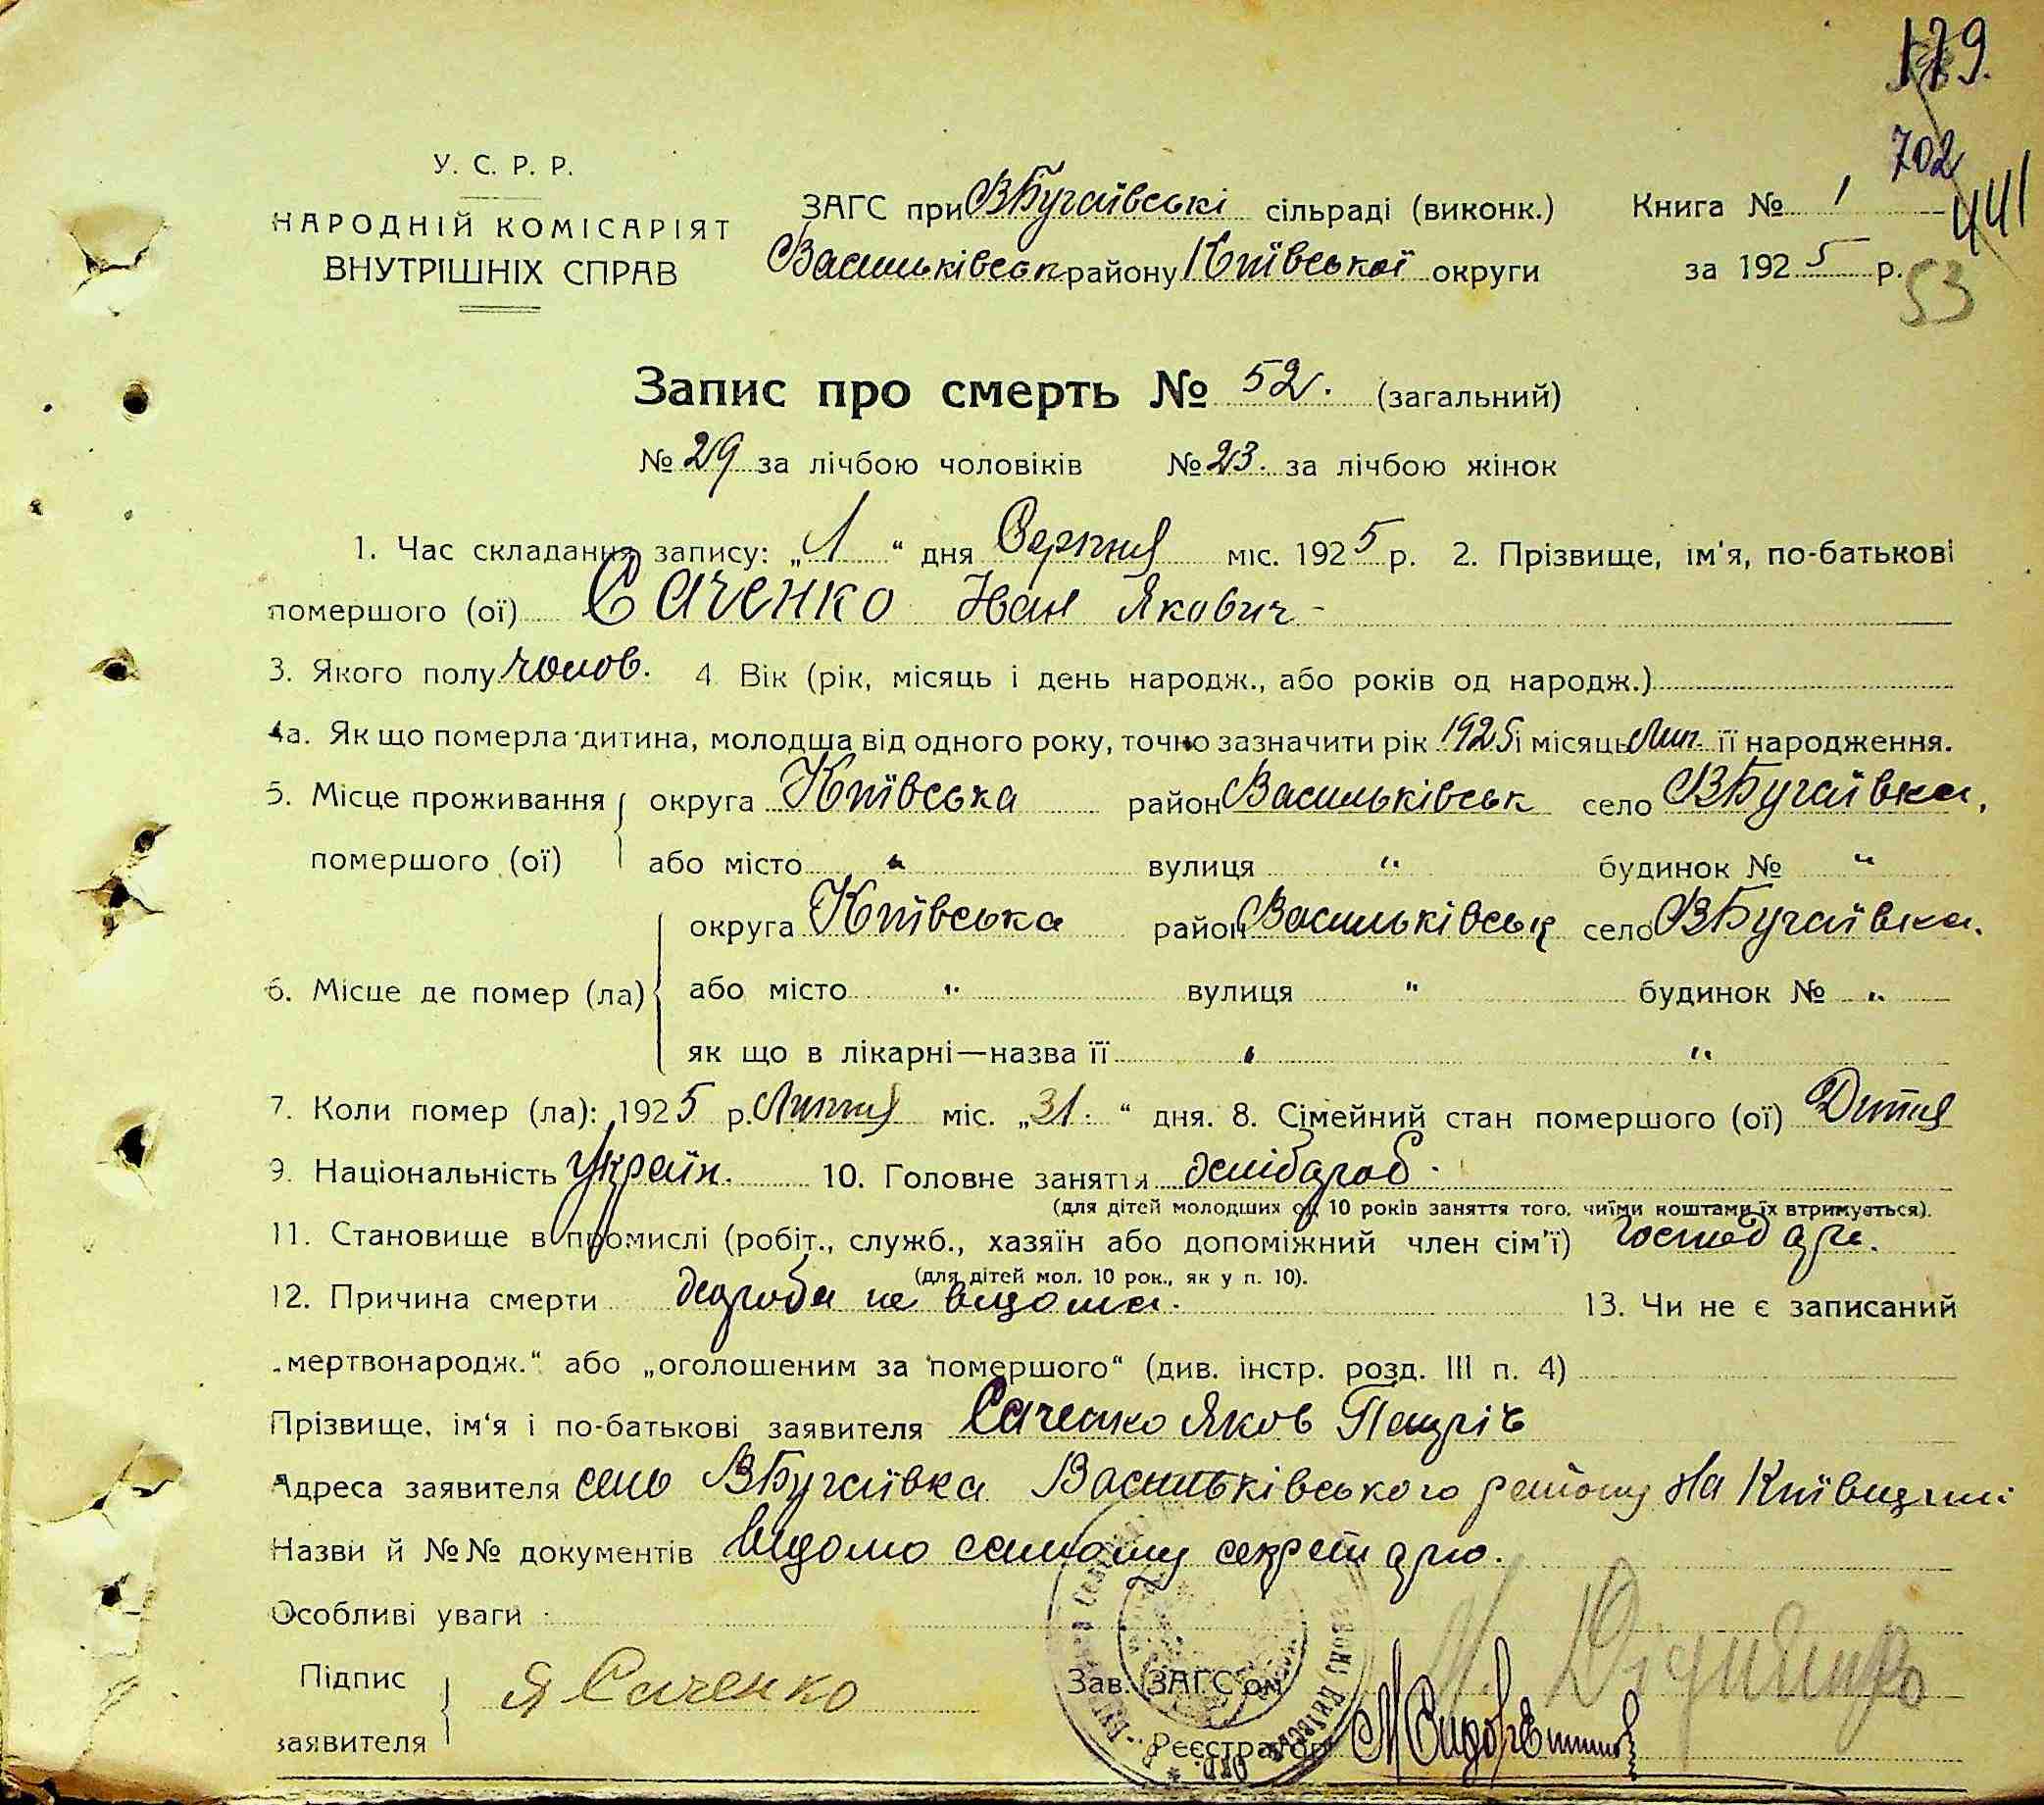 179.
702
441
У. С. Р. Р.
НАРОДНІЙ КОМІСАРІЯТ
ВНУТРІШНІХ СПРАВ
ЗАГС при ВБугаївські сільраді (виконк.) Книга № 1
Васильківськ району Київської округи за 1925 р.
53
Запис про смерть № 52. (загальний)
№ 29 за лічбою чоловіків № 23. за лічбою жінок
1. Час складання запису: „1“ дня Серпня міс. 1925 р. 2. Прізвище, ім'я, по-батькові
помершого (ої) Саченко Іван Якович
3. Якого полу чолов. 4 Вік (рік, місяць і день народж., або років од народж.)
4а. Як що померла дитина, молодша від одного року, точно зазначити рік 1925 і місяць Лип. її народження.
5. Місце проживання округа Київська район Васильківськ село ВБугаївка,
помершого (ої) або місто " вулиця " будинок № "
округа Київська район Васильківськ село ВБугаївка.
6. Місце де помер (ла) або місто " вулиця " будинок № "
як що в лікарні—назва її " "
7. Коли помер (ла): 1925 р. Липня міс. „31.“ дня. 8. Сімейний стан помершого (ої) Дитя
9. Національність Україн. 10. Головне заняття хлібороб.
(для дітей молодших од 10 років заняття того, чиїми коштами їх втримується).
11. Становище в промислі (робіт., служб., хазяїн або допоміжний член сім'ї) господар.
(для дітей мол. 10 рок., як у п. 10).
12. Причина смерти хороба не відома. 13. Чи не є записаний
„мертвонародж.“ або „оголошеним за помершого“ (див. інстр. розд. III п. 4)
Прізвище, ім'я і по-батькові заявителя Саченко Яков Петріч
Адреса заявителя село ВБугаївка Васильківського району на Київщині
Назви й №№ документів відомо самому секретарю.
Особливі уваги
Підпис
заявителя
Я Саченко
Зав. ЗАГС'ом
Реєстратор